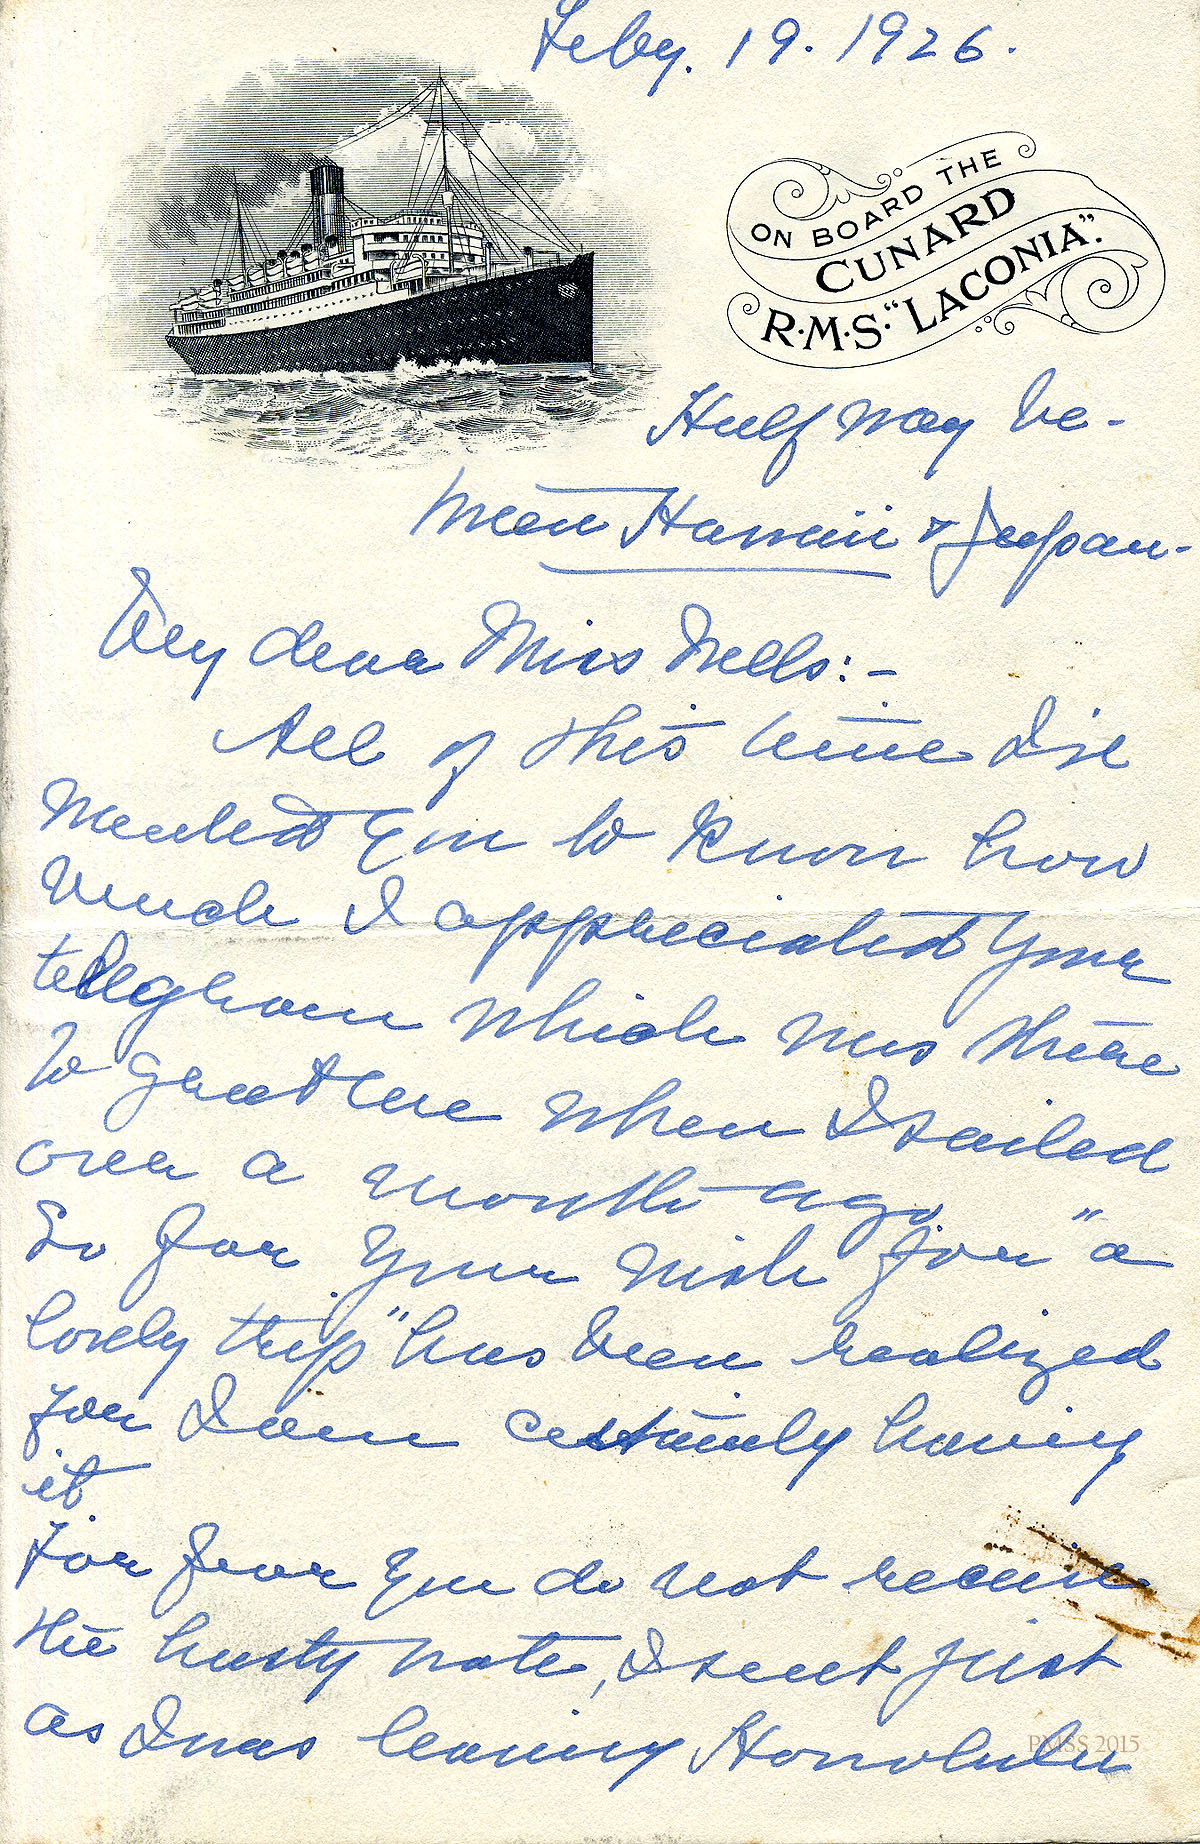 Feby. 19. 1926.
ON BOARD THE
CUNARD
R.M.S. "LACONIA".
Half way be-
tween Hawaii & Japan-
My dear Miss Wells:-
All of this time I've
wanted you to know how
much I appreciated your
telegram which was there
to greet me when I sailed
over a month ago
So far your wish for "a
lovely trip" has been realized
for I am certainly having
it.
For fear you do not receive
the hasty note, I sent just
as I was leaving Honolulu
PMSS 2015